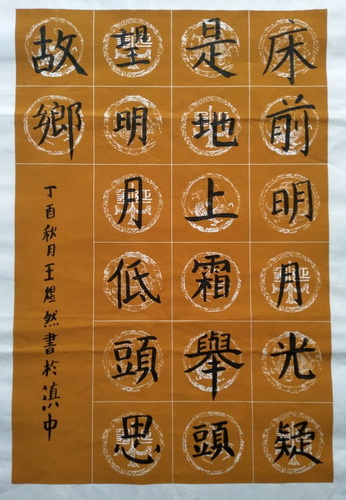 床前明月光疑
是地上霜舉頭
望明月低頭思
故鄉
丁酉秋月王煜然書於滇中